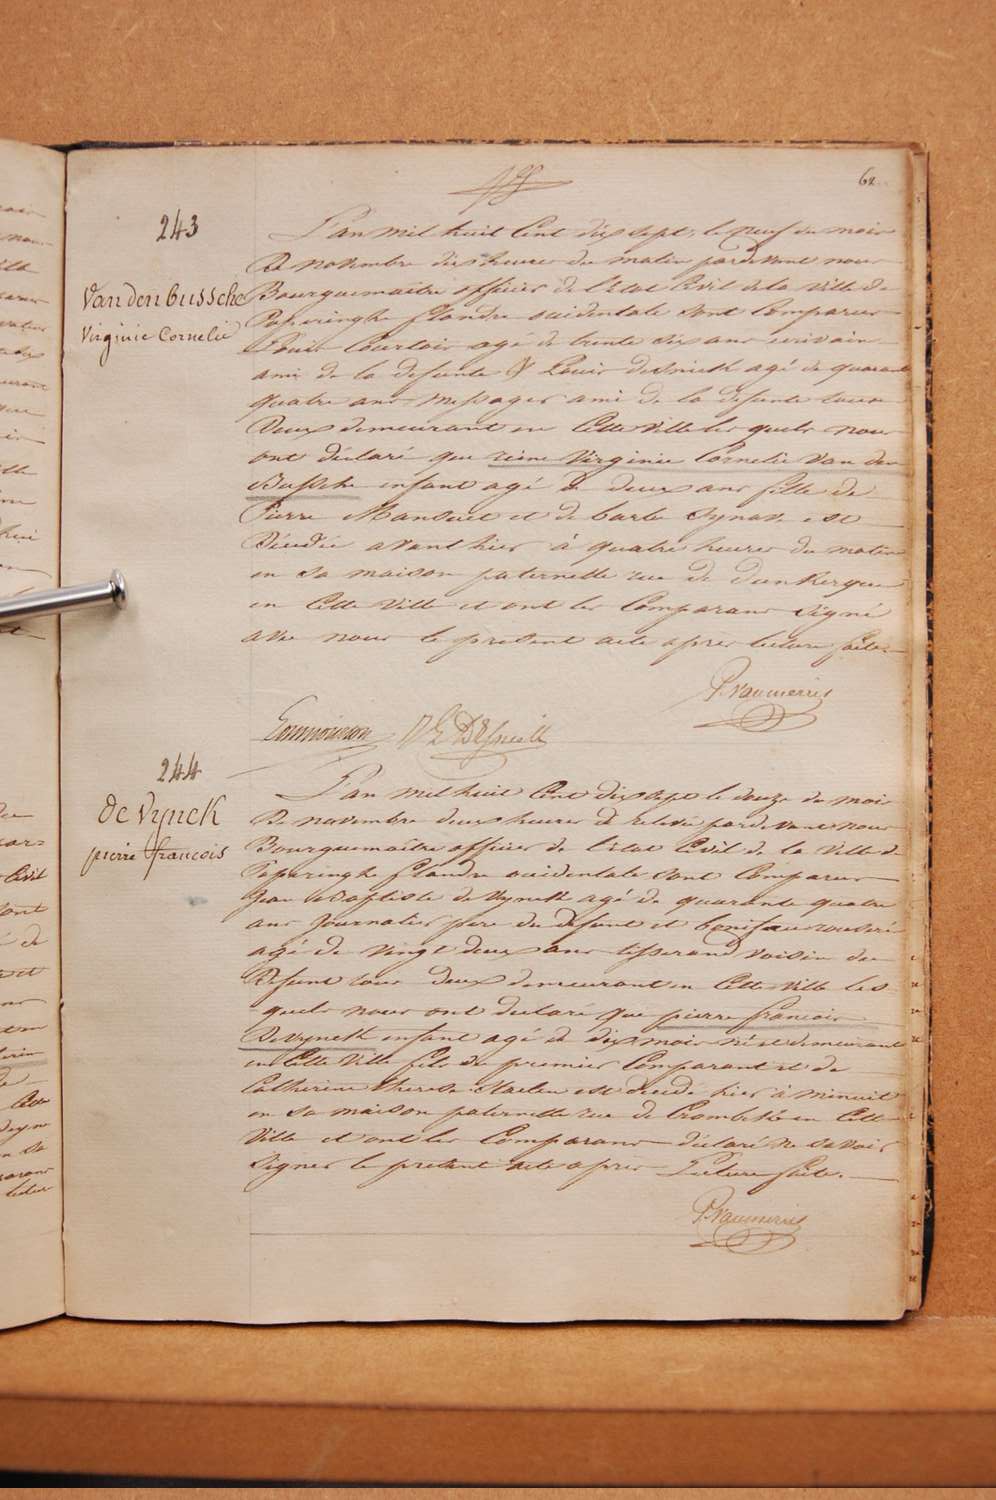 62
243
Vandenbussche
Virginie Cornelie
L'an mil huit Cent dix sept, le neuf du mois
De novembre dix heures du matin pardevant nous
Bourguemaitre officier de l'Etat Civil de la Ville de
Poperinghe flandre occidentale sont Comparus
Louis Courtois agé de trente six ans ecrivain
ami de la defunte & Louis desmidt agé de quarante
quatre ans messager ami de la defunte tous
Deux demeurant en Cette Ville les quels nous
ont déclaré que reine Virginie Cornelie Van den
Bussche enfant agé de deux ans fille de
Pierre Mansuet et de barbe Synave est
Décedée avant hier à quatre heures du matin
en sa maison paternelle rue de Dunkerque
en Cette Ville et ont les Comparans Signé
avec nous le present acte apres lecture faite.
P. Vanmerris
244
de Vynck
pierre francois
L'an mil huit Cent dix sept le douze du mois
De novembre deux heures de relevée pardevant nous
Bourguemaitre officier de l'Etat Civil de la Ville de
Poperinghe flandre occidentale sont Comparus
Jean Baptiste de Vynck agé de quarante quatre
ans Journalier pere du defunt et boniface
agé de vingt deux ans tisserand Voisin du
Defunt tous deux demeurant en Cette Ville les
quels nous ont declaré que pierre francois
De Vynck enfant agé de dix mois né et demeurant
en Cette Ville fils du premier Comparant et de
Catherine Therese Staelen est decedé hier à minuit
en sa maison paternelle rue de Crombeke en Cette
Ville et ont les Comparans déclaré ne savoir
Signer le present acte apres Lecture faite.
P. Vanmerris